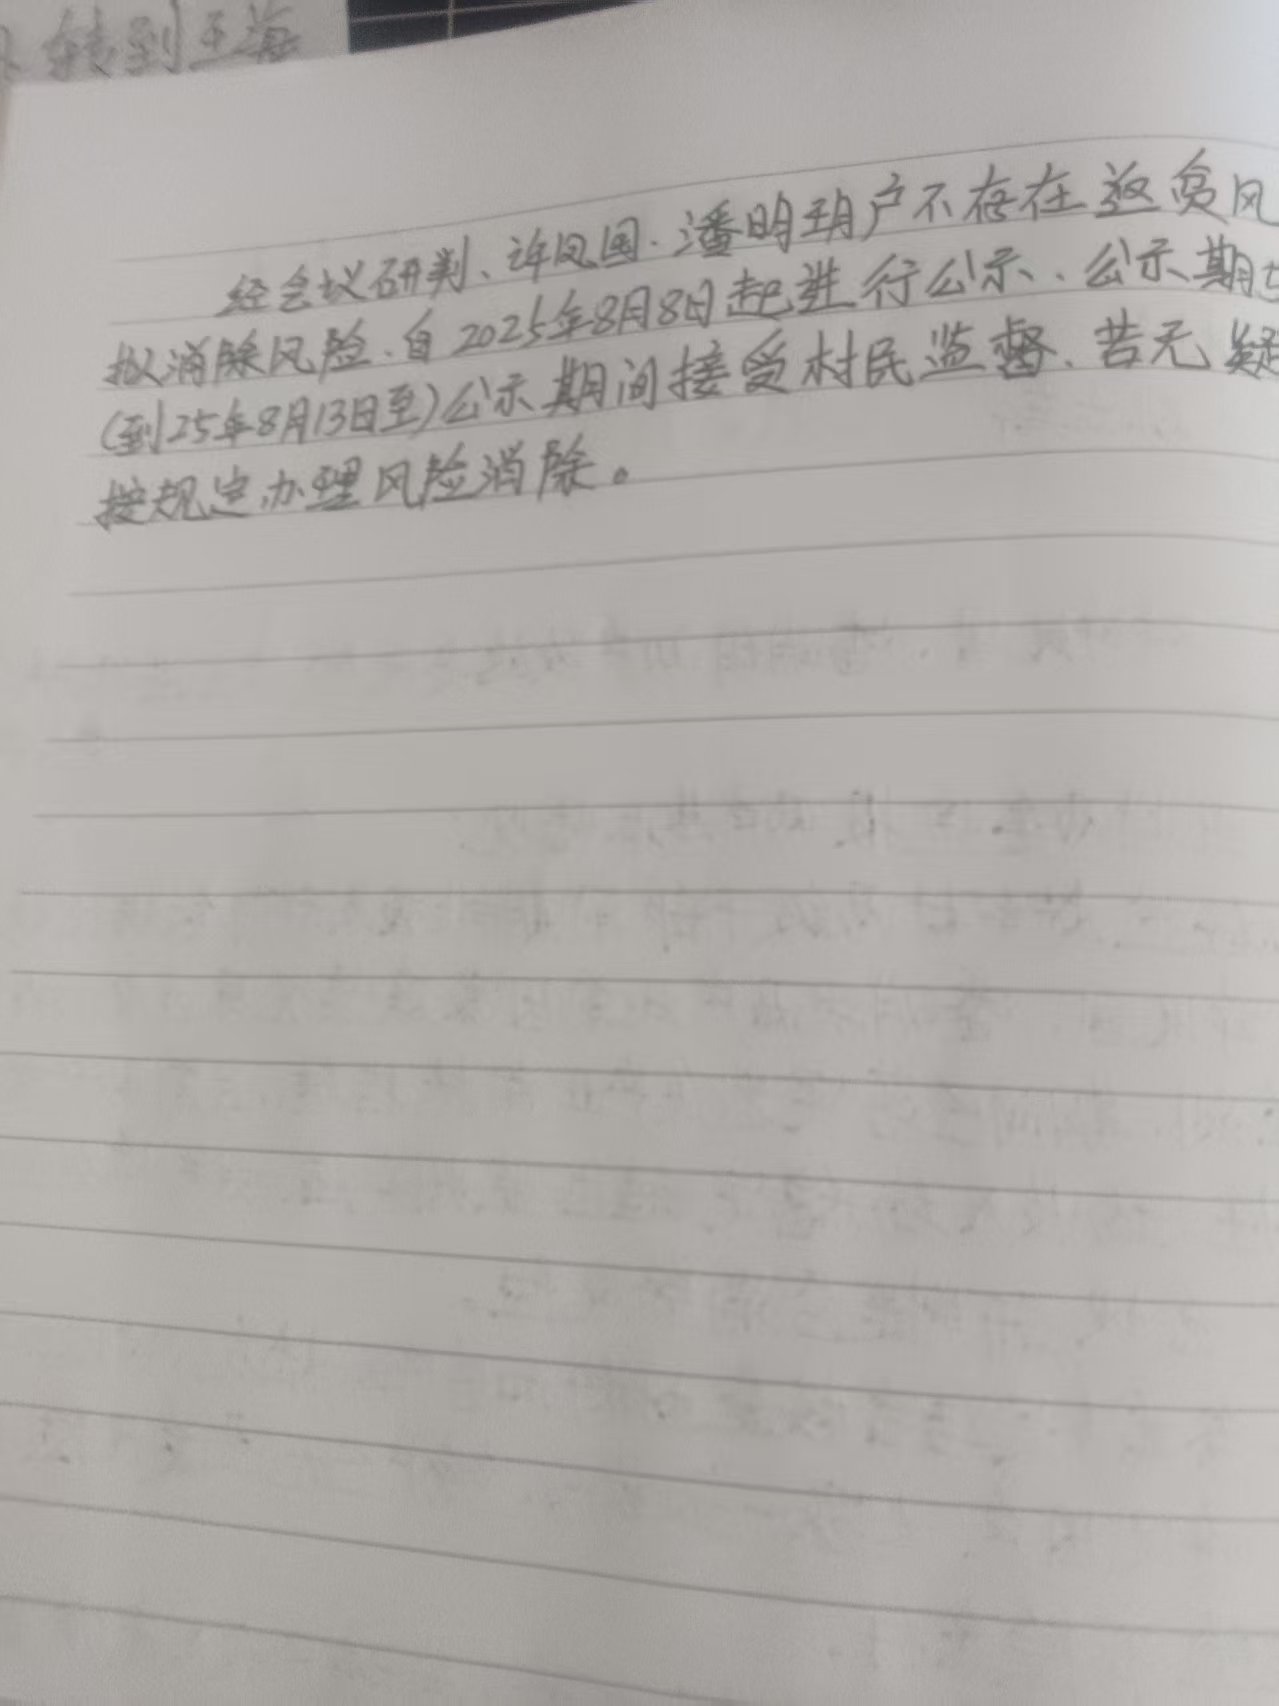 转到王海
经会议研判、许凤国.潘明玥户不存在返贫风
拟消除风险.自2025年8月8日起进行公示、公示期
(到25年8月13日至)公示期间接受村民监督、若无疑
按规定办理风险消除。